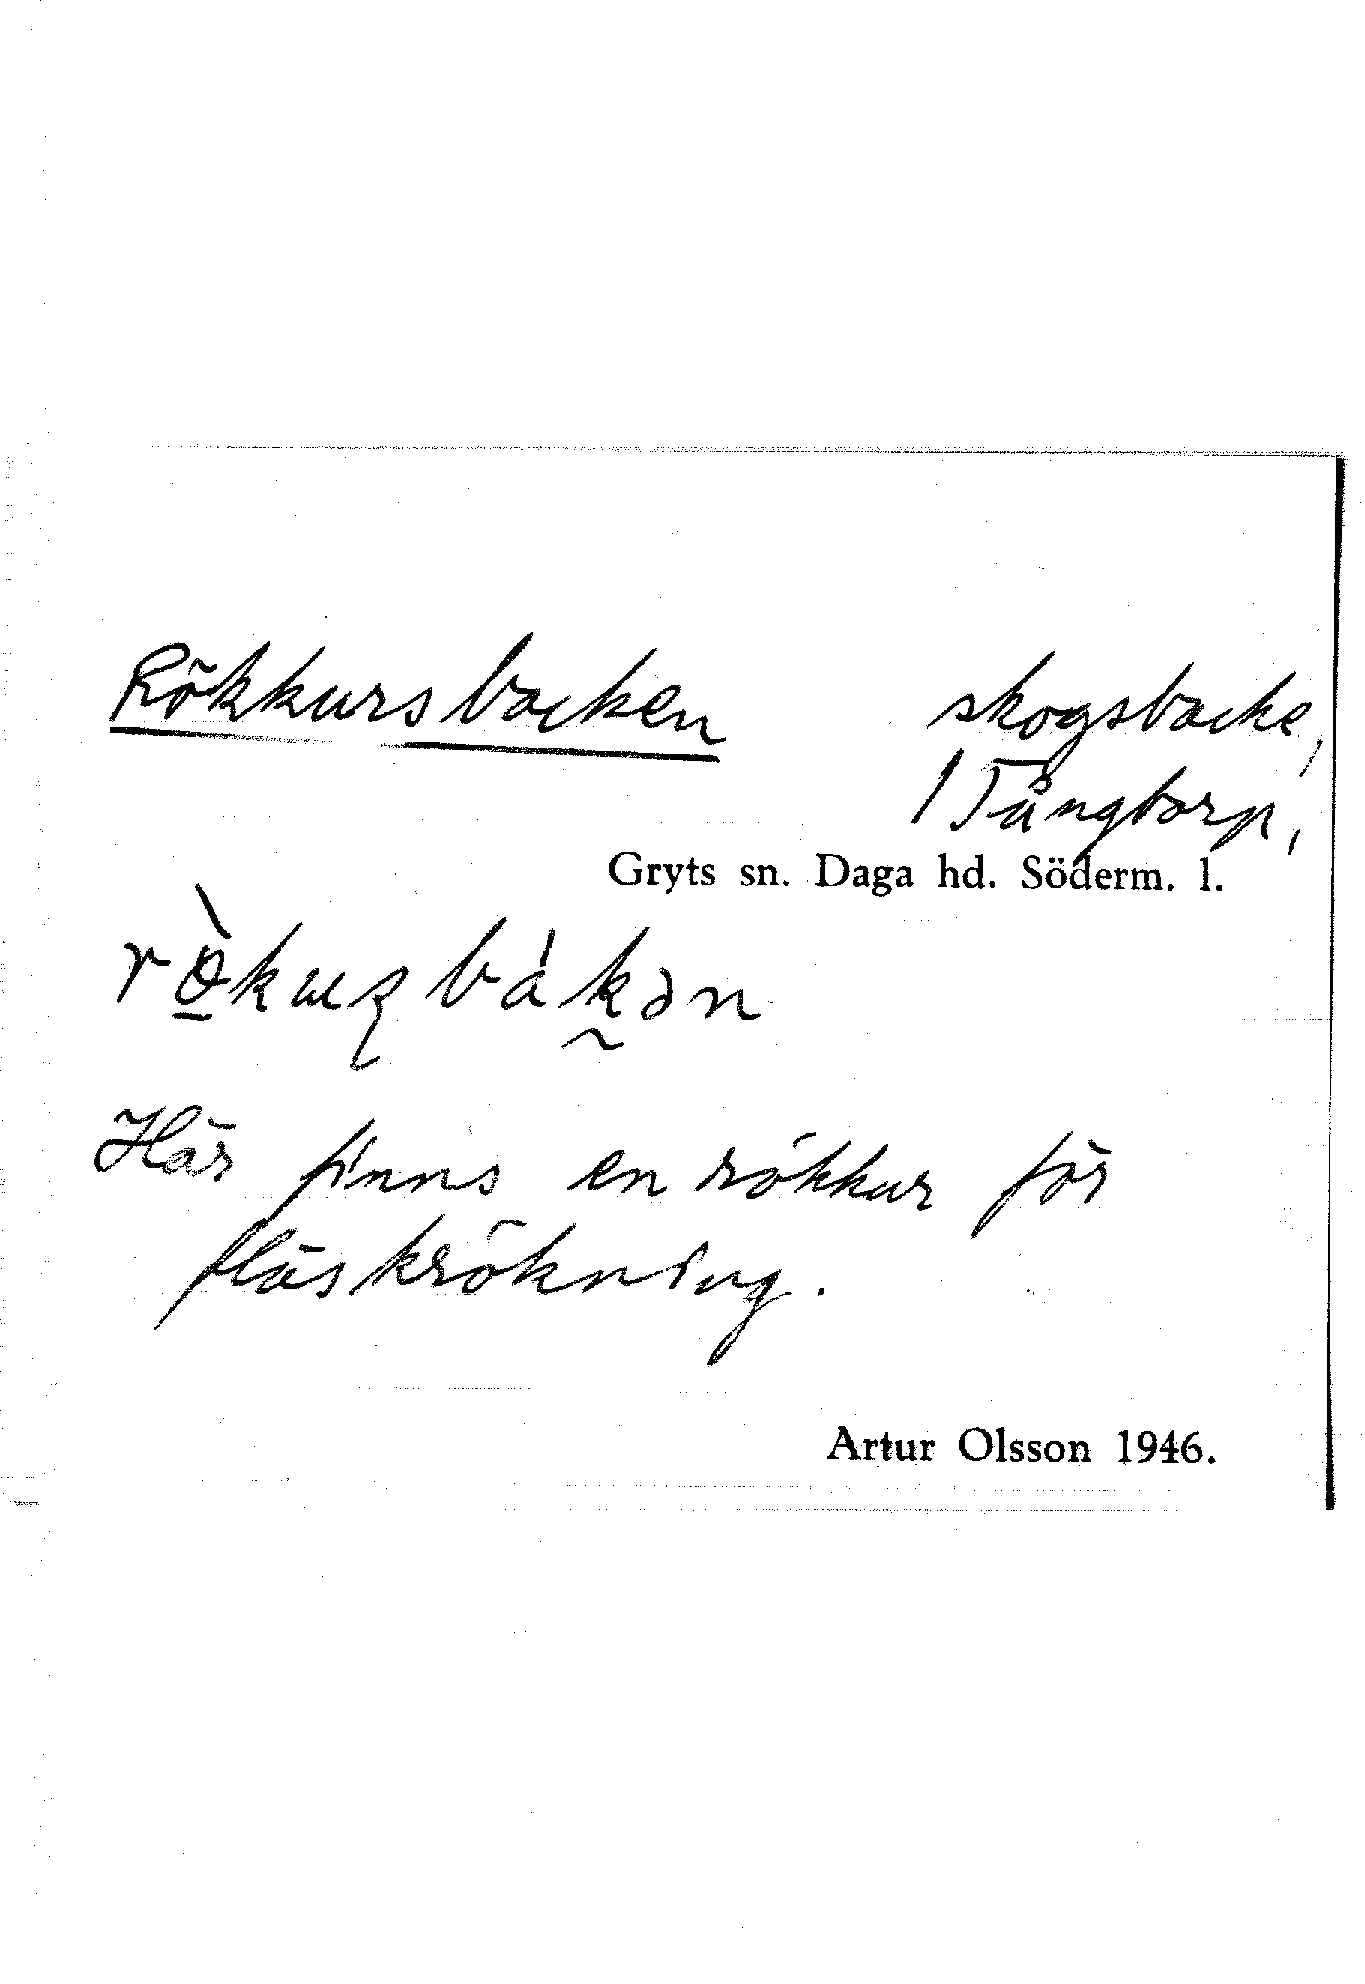 Rökkursbacken skogsbacke,
/ Tångtorp,
Gryts sn. Daga hd. Söderm. l.
Här finns en rökkur för
fläskrökning.
Artur Olsson 1946.